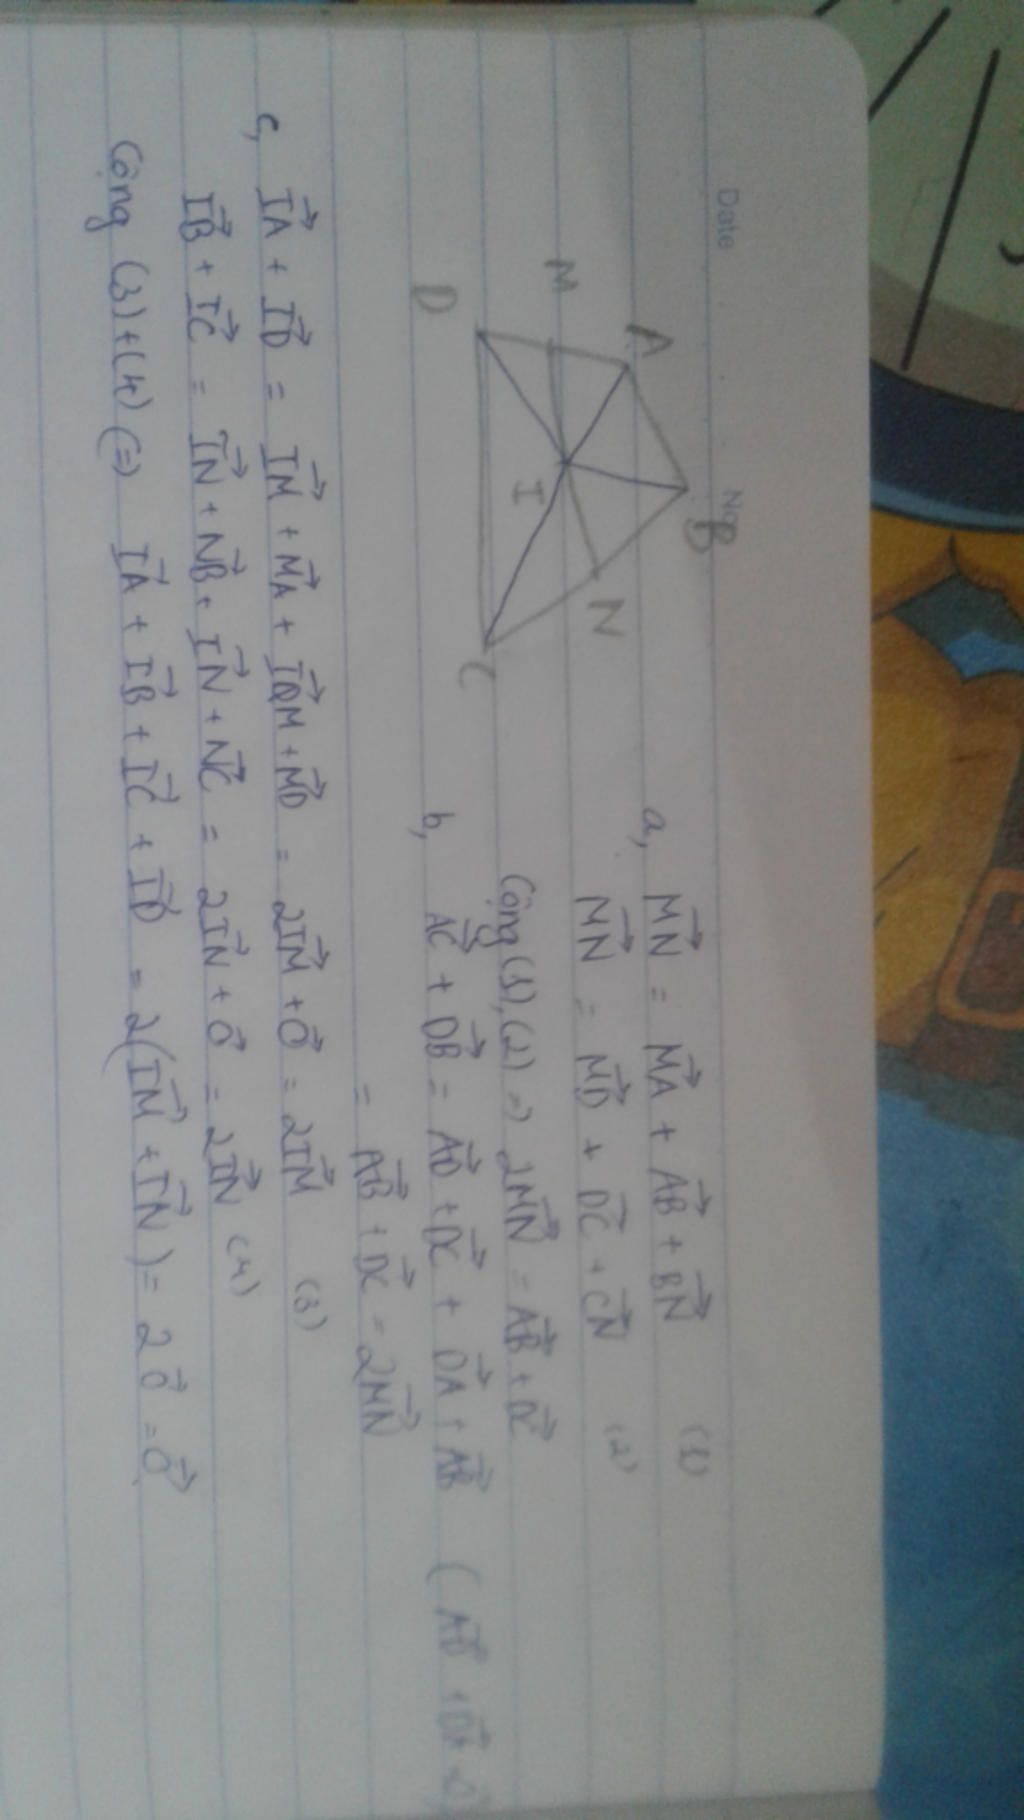 Date
No
A
B
M
N
I
D
C
a, MN→ = MA→ + AB→ + BN→ (1)
MN→ = MD→ + DC→ + CN→ (2)
Cộng (1),(2) => 2MN→ = AB→ + DC→
b, AC→ + DB→ = AD→ + DC→ + DA→ + AB→ (AD→ + DA→ = O→)
= AB→ + DC→ = 2MN→
c, IA→ + ID→ = IM→ + MA→ + IM→ + MD→ = 2IM→ + O→ = 2IM→ (3)
IB→ + IC→ = IN→ + NB→ + IN→ + NC→ = 2IN→ + O→ = 2IN→ (4)
Cộng (3)+(4) (=) IA→ + IB→ + IC→ + ID→ = 2(IM→ + IN→) = 2O→ = O→